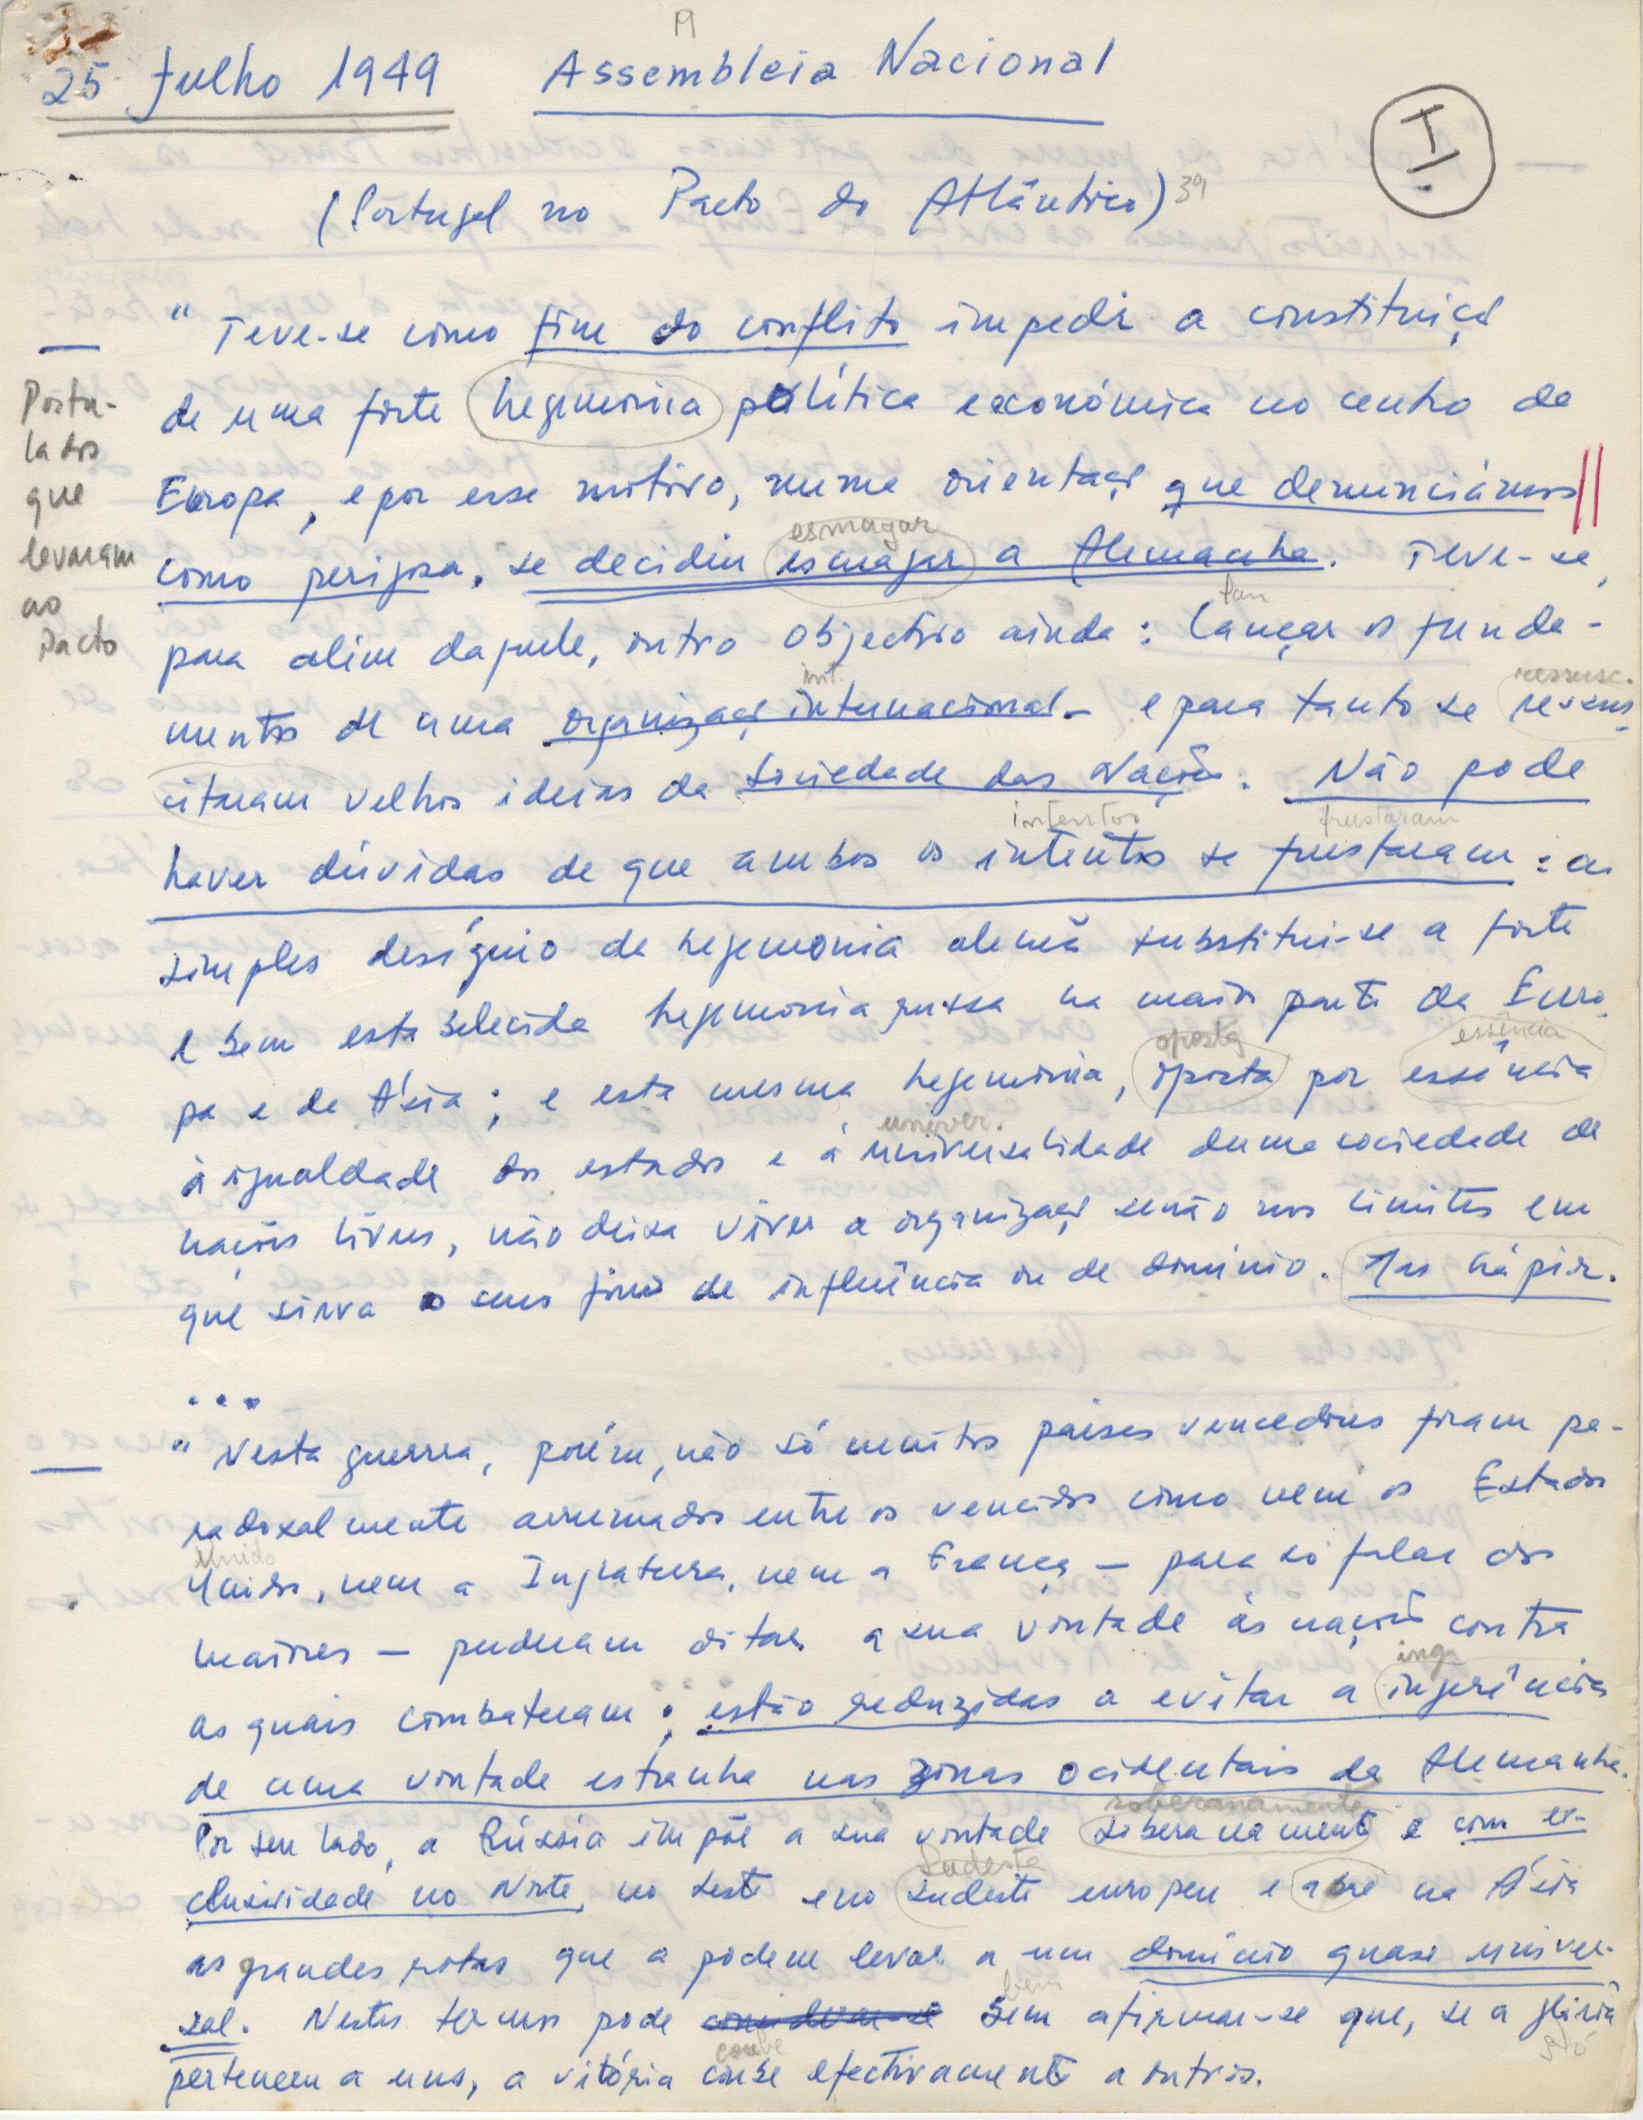 25 Julho 1949 Assembleia Nacional
I
(Portugal no Pacto do Atlântico)
" Teve-se como fim do conflito impedir a constituição
de uma forte hegemonia política económica no centro da
Europa, e por esse motivo, numa orientação que denunciámos
esmagar
como perigosa, se decidiu esmagar a Alemanha. Teve-se,
lan
para além daquele, outro objectivo ainda: lançar os funda-
int. ressusc.
mentos de uma organização internacional - e para tanto se ressus
citaram velhas ideias da Sociedade das Nações. Não pode
intentos frustaram
haver dúvidas de que ambos os intentos se frustaram: ao
simples desígnio de hegemonia alemã substitui-se a forte
e bem estabelecida hegemonia russa na maior parte da Euro
oposta essência
pa e da Ásia; e esta mesma hegemonia, oposta por essência
univer.
à igualdade dos estados e à universalidade duma sociedade de
nações livres, não deixa viver a organização senão nos limites em
que sirva os seus fins de influência ou de domínio. Mas há pior.
Postu-
lados
que
levaram
ao
Pacto
...
" Nesta guerra, porém, não só muitos países vencedores foram pa-
radoxalmente arrumados entre os vencidos como nem os Estados
Unido
Unidos, nem a Inglaterra, nem a França — para só falar dos
maiores — puderam ditar a sua vontade às nações contra
inge
as quais combateram: estão reduzidas a evitar a ingerência
de uma vontade estranha nas zonas ocidentais da Alemanha.
soberanamente
Por seu lado, a Rússia impõe a sua vontade soberanamente e com ex-
Sudeste
clusividade no Norte, no Leste e no sudeste europeu e abre na Ásia
as grandes rotas que a podem levar a um domínio quase univer-
bem
sal. Nestes termos pode bem afirmar-se que, se a glória
coube gló
pertencem a uns, a vitória coube efectivamente a outros.